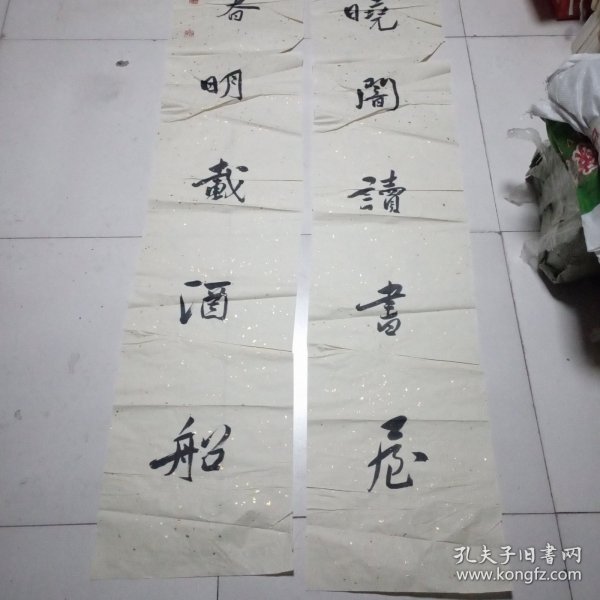 曉闇讀書屋
春明載酒船
孔夫子旧书网
www.kongfz.com